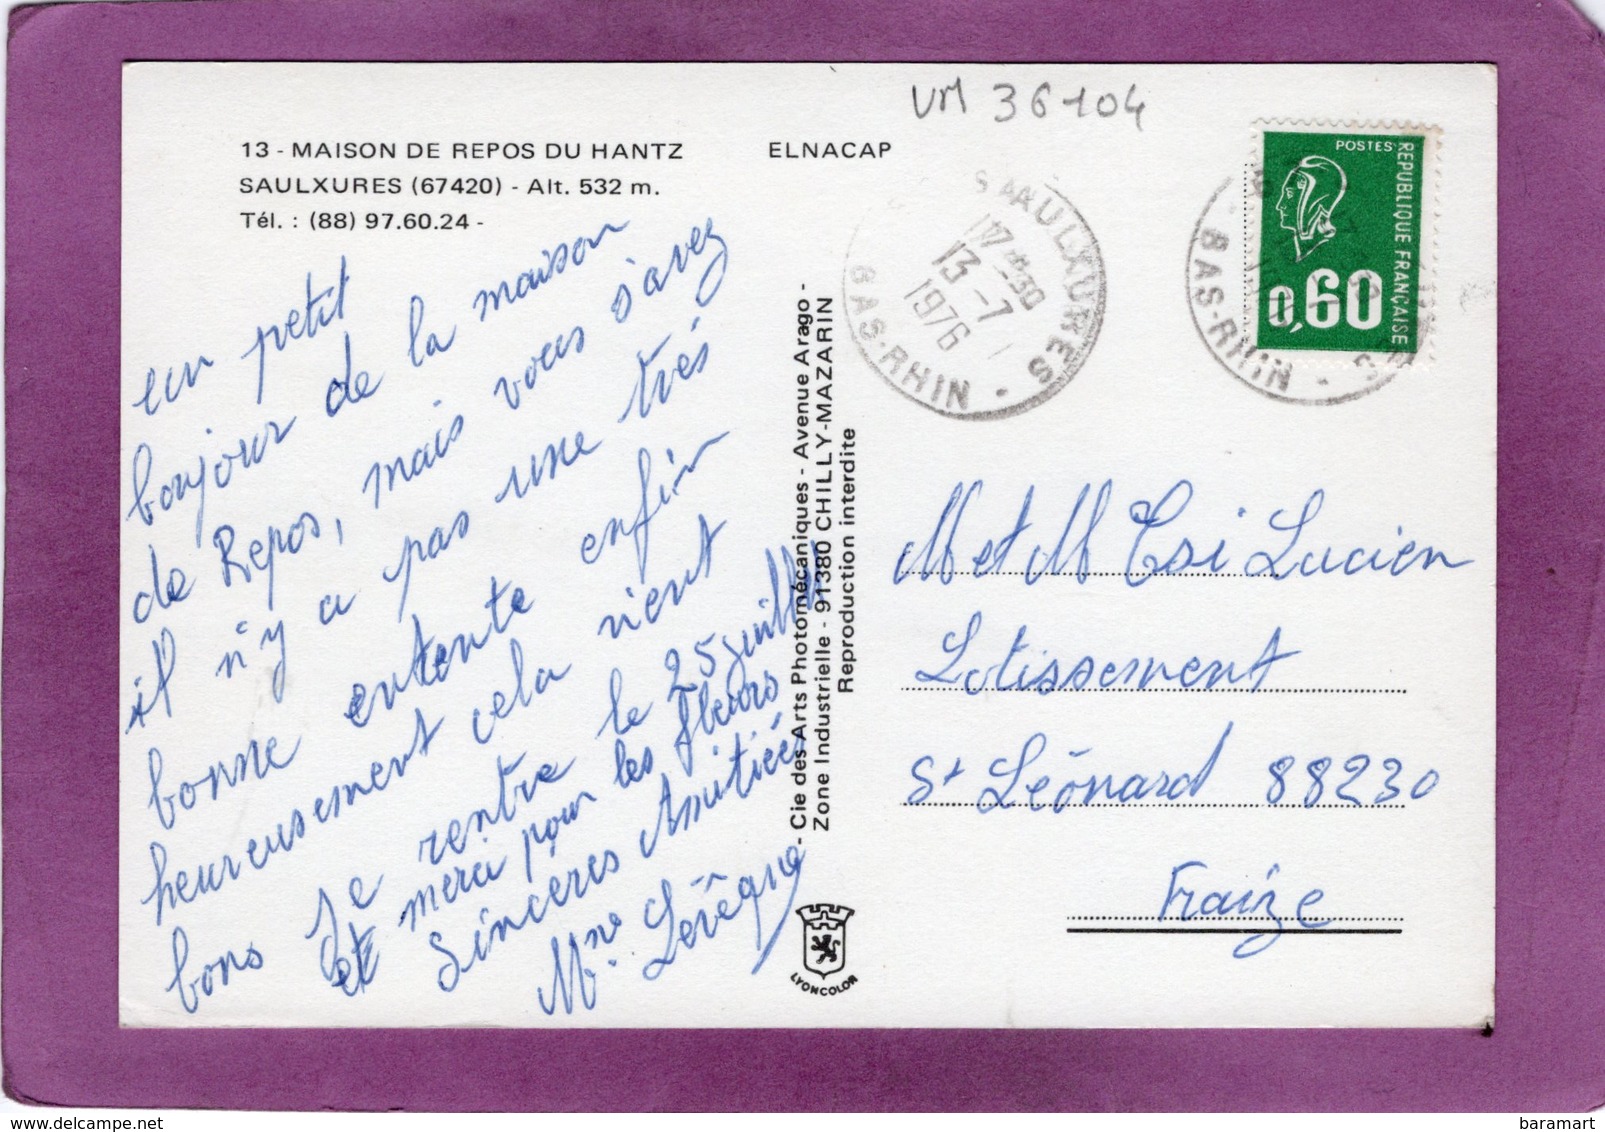 VM 36104
13 - MAISON DE REPOS DU HANTZ
ELNACAP
SAULXURES (67420) - Alt. 532 m.
Tél. : (88) 97.60.24 -
un petit
bonjour de la maison
de Repos, mais vous s'avez
il n'y a pas une très
bonne entente enfin
heureusement cela vient
bons Je rentre le 25 juillet
et merci pour les fleurs
Sincères Amitiés
Mme Levêque
- Cie des Arts Photomécaniques - Avenue Arago -
Zone Industrielle - 91380 CHILLY-MAZARIN
Reproduction interdite
LYONCOLOR
SAULXURES
17 H 30
13 - 7
1976
BAS-RHIN
POSTES
REPUBLIQUE FRANÇAISE
0,60
BAS-RHIN
M et M Lucien
Lotissement
St Léonard 88230
Fraize
delcampe.net
baramart